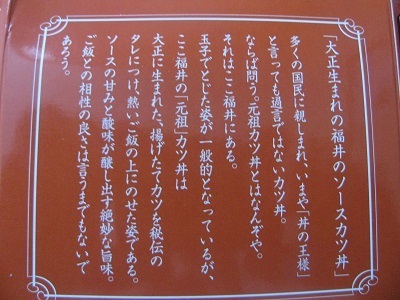 「大正生まれの福井のソースカツ丼」
多くの国民に親しまれ、いまや「丼の王様」
と言っても過言ではないカツ丼。
ならば問う。元祖カツ丼とはなんぞや。
それはここ福井にある。
玉子でとじた姿が一般的となっているが、
ここ福井の「元祖」カツ丼は
大正に生まれた、揚げたてカツを秘伝の
タレにつけ、熱いご飯の上にのせた姿である。
ソースの甘みと酸味が醸し出す絶妙な旨味。
ご飯との相性の良さは言うまでもないで
あろう。